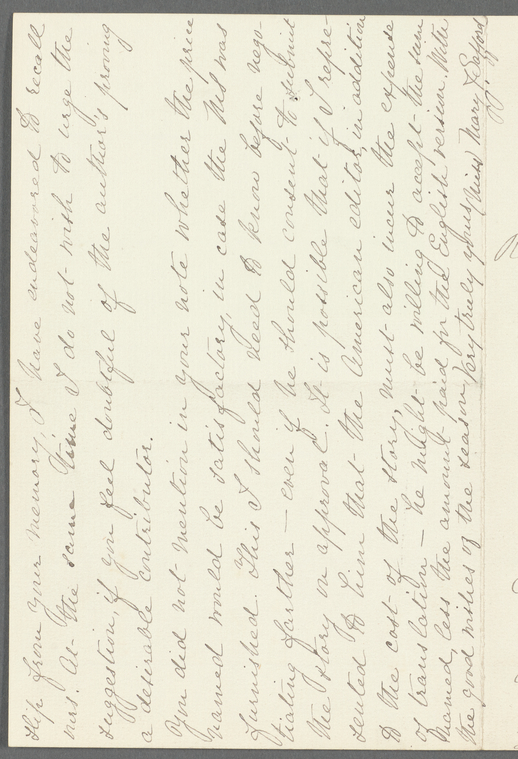 slip from your memory, I have endeavored to recall
mrs. At the same time I do not wish to urge the
suggestion, if you feel doubtful of the author's proving
a desirable contributor.
You did not mention in your note whether the price
named would be satisfactory, in case the MS was
furnished. This I should need to know before nego-
tiating farther — even if he should consent to submit
the story on approval. It is possible that if I repre-
sented to him that the American editor, in addition
to the cost of the story, must also incur the expense
of translation — he might be willing to accept the sum
named, less the amount paid for the English version. With
the good wishes of the season, Very truly yours (Miss) Mary J. Safford